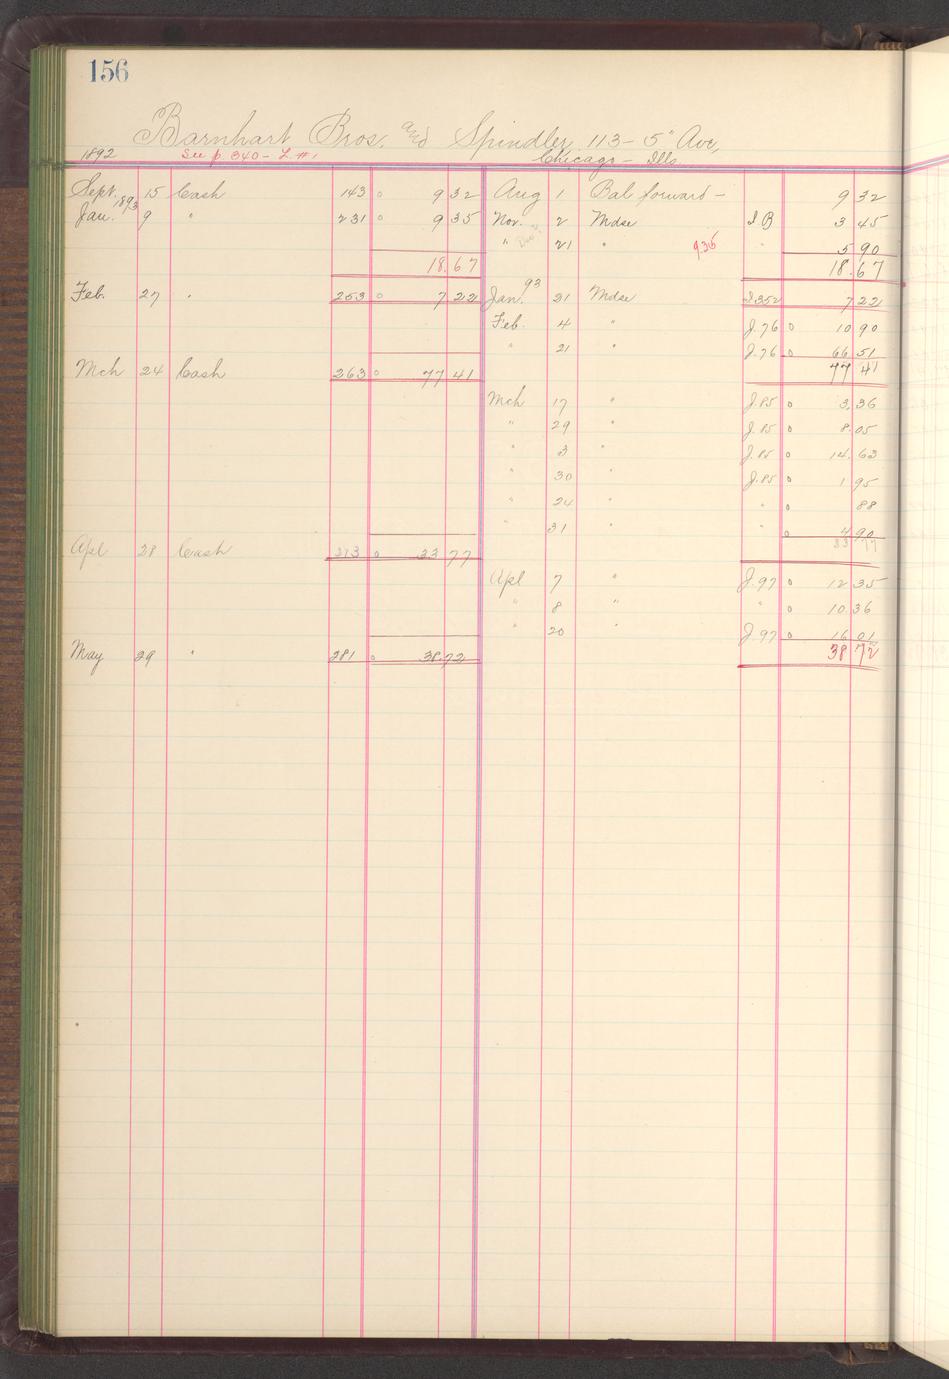 156
Barnhart Bros. and Spindler 113 - 5" Ave,
1892 See p. 340 - L #1 Chicago - Ills
Sept. 15 Cash 143 o 9 32 Aug 1 Bal forward - 9 32
1893
Jan. 9 " 231 o 9 35 Nov. 2 Mdse I B 3 45
" 21 " 9.35 " 5 90
18.67 18.67
93
Feb. 27 " 253 o 7 22 Jan. 21 Mdse I 352 7 22
Feb. 4 " J.76 o 10 90
" 21 " J.76 o 66 51
Mch 24 Cash 263 o 77 41 77 41
Mch 17 " J.85 o 3.36
" 29 " J.85 o 8.05
" 3 " J.85 o 14.63
" 30 " J.85 o 1 95
" 24 " " o 88
" 31 " " o 4 90
Apl 28 Cash 273 o 33 77 33 77
Apl 7 " J.97 o 12 35
" 8 " " o 10 36
" 20 " J.97 o 16 01
May 29 " 281 o 38.72 38 72